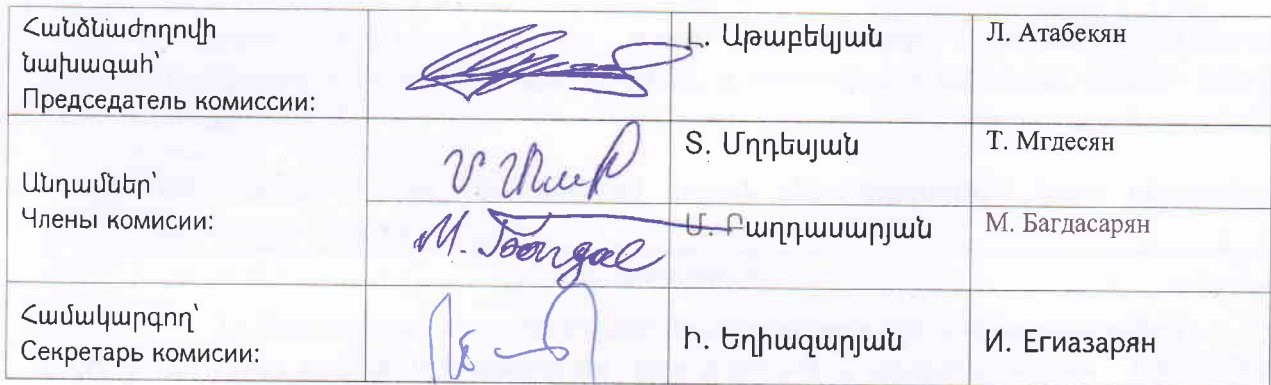 Հանձնաժողովի
նախագահ՝
Председатель комиссии:
Լ. Աթաբեկյան
Л. Атабекян
Անդամներ՝
Члены комисии:
Տ. Մղդեսյան
Т. Мгдесян
М. Багдас
Մ. Բաղդասարյան
М. Багдасарян
Համակարգող՝
Секретарь комисии:
Ի. Եղիազարյան
И. Егиазарян